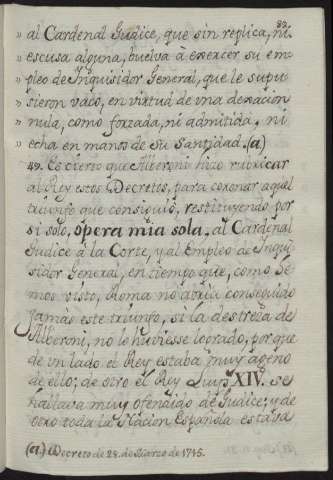 89.
" al Cardenal Judice, que sin replica, ni
" escusa alguna, buelva à exercer su em
" pleo de Inquisidor General, que le supu
" sieron vaco, en virtud de una dexacion
" nula, como forzada, ni admitida, ni
" echa en manos de Su Santidad. (a)
49. Es cierto que Alberoni hizo rubricar
al Rey estos Decretos, para coronar aquel
triunfo que consiguió, restituyendo por
si solo, ópera mia sola, al Cardenal
Judice à la Corte, y al Empleo de Inqui
sidor General, en tiempo que, como he
mos visto, Roma no avria conseguido
jamàs este triunfo, si la destreza de
Alberoni, no le huviesse logrado, porque
de un lado el Rey estaba muy ageno
de ello; de otro el Rey Luys XIV. se
hallava muy ofendido de Judice; y de
otro toda la Nacion Española estava
(a) Decreto de 28. de Marzo de 1715.